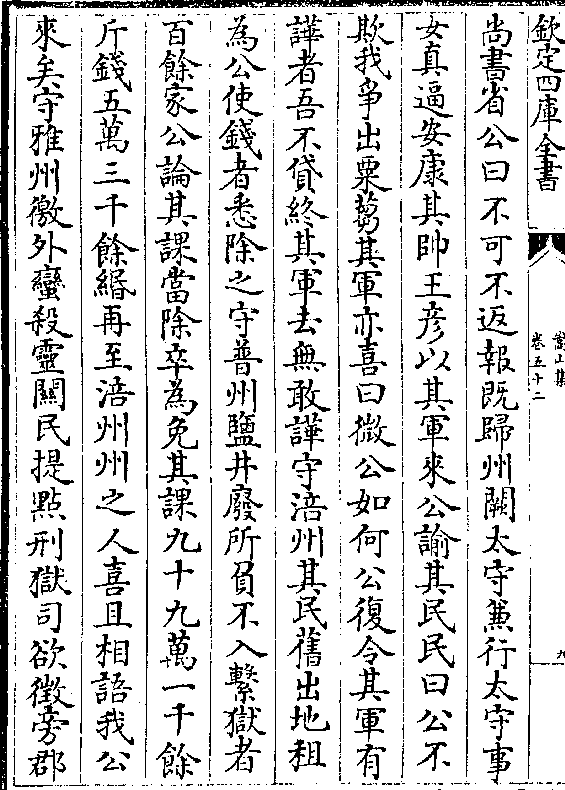 欽定四庫全書
嵩山集
卷五十二
九
尚書省公曰不可不返報既歸州闕太守兼行太守事
女真逼安康其帥王彦以其軍來公諭其民民曰公不
欺我爭出粟芻其軍亦喜曰微公如何公復令其軍有
譁者吾不貸終其軍去無敢譁守涪州其民舊出地租
為公使錢者悉除之守普州鹽井廢所負不入繫獄者
百餘家公論其課當除卒為免其課九十九萬一千餘
斤錢五萬三千餘緡再至涪州州之人喜且相語我公
來矣守雅州徼外蠻殺靈關民提點刑獄司欲徴旁郡